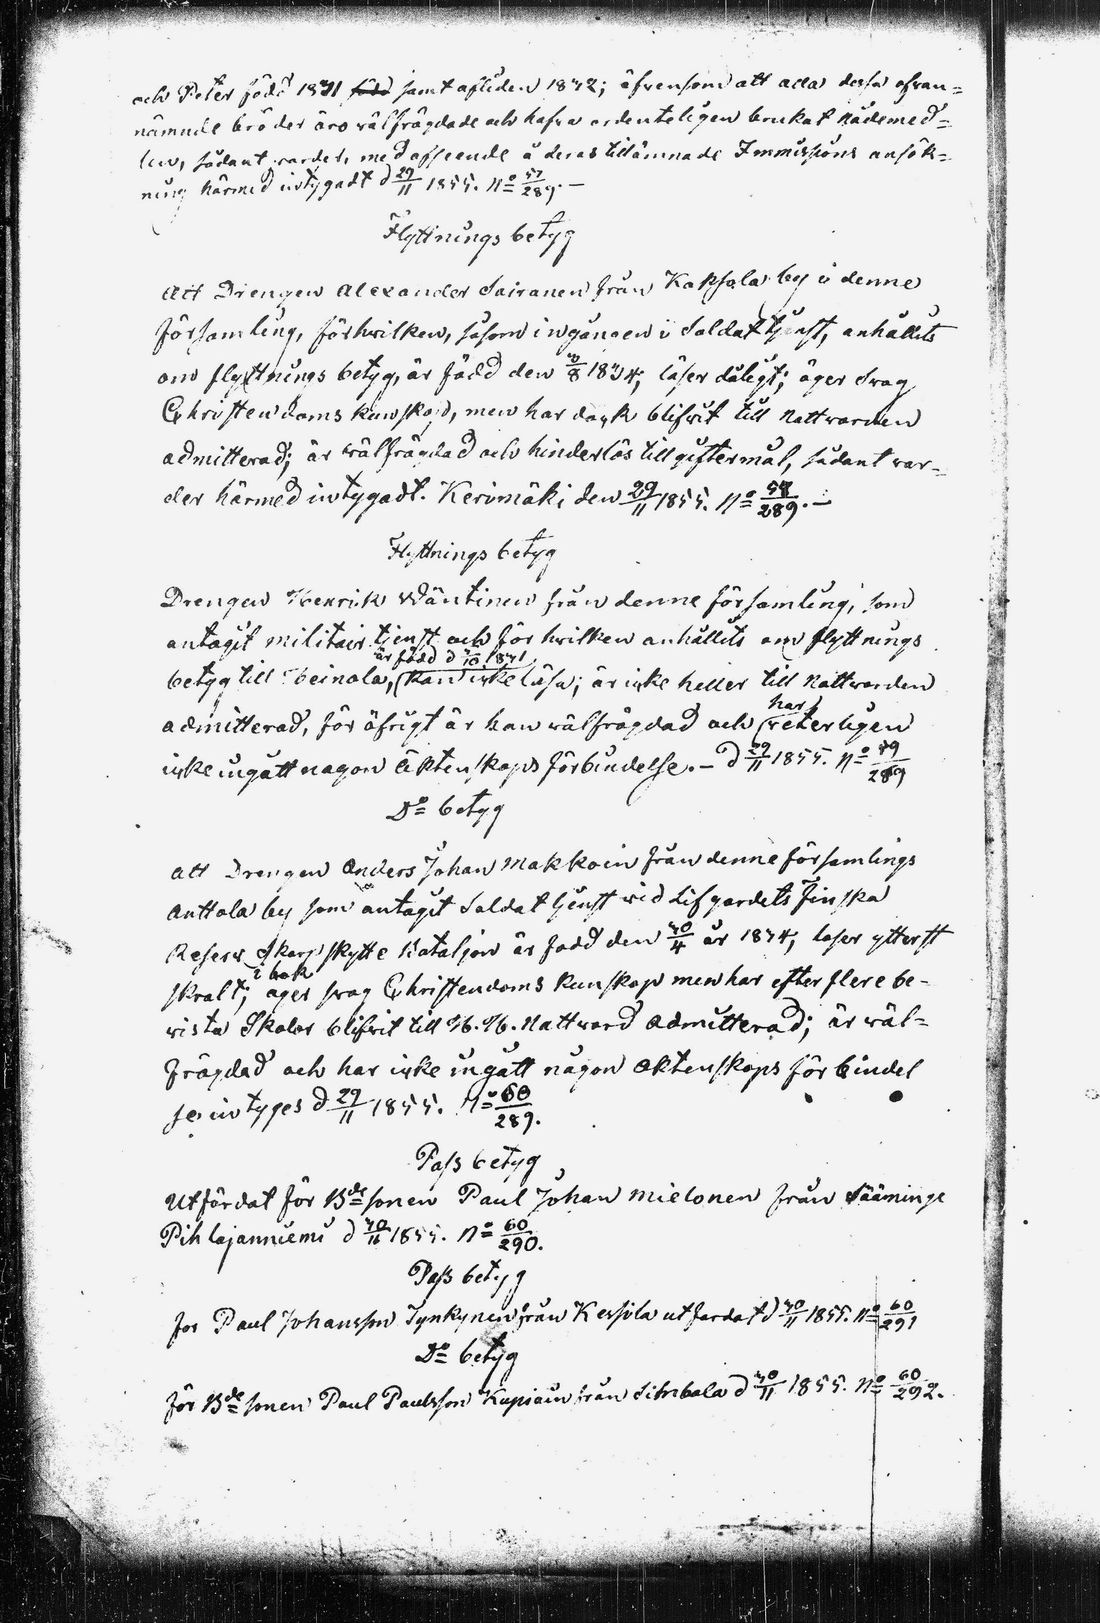 och Peter född 1831 född samt afliden 1832; äfvensom att alla dessa ofvan=
nämnde bröder äro välfrägdade och hafva ordenteligen brukat nådemed=
len, sådant varder, med afseende å deras tillämnade Immissions ansök=
ning härmed intygadt d 29/11 1855. No 57/289. —
Flyttnings betyg
Att Drengen Alexander Sairanen från Kaksala by i denne
församling, förhvilken, såsom ingången i Soldat tjenst, anhållits
om flyttnings betyg, är född den /8 1834, läser dåligt; äger svag
Christendoms kunskap, men har dock blifvit till Nattvarden
admitterad; är välfrägdad och hinderlös till giftermål, sådant var=
der härmed intygadt. Kerimäki den 29/11 1855. No 58/289. —
Flyttnings betyg
Drengen Henrik Wäntinen från denne församling, som
antagit militair tjenst och för hvilken anhållits om flyttnings
är född d /10 1831
betyg till Heinola, kan icke läsa; är icke heller till Nattvarden
admitterad, för öfrigt är han välfrägdad och har veterligen
icke ingått nagon Äktenskaps förbindelse. — d 29/11 1855. No 59/289
Do betyg
Att Drengen Anders Johan Makkoin från denne församlings
Anttola by som antagit Soldat tjenst vid Lifgardets Finska
Reserv Skarpskytte Bataljon är född den 30/4 år 1834, läser ytterst
i bok
skralt; äger svag Christendoms kunskap men har efter flere be-
vista Skolor blifvit till H. H. Nattvard admitterad; är väl=
frägdad och har icke ingått någon Äktenskaps förbindel
se intyges d 29/11 1855. No 60/289.
Pass betyg
Utfärdat för Bde sonen Paul Johan Mielonen från Sääminge
Pihlajanniemi d 30/11 1855. No 60/290.
Pass betyg
för Paul Johansson Tynkynen från Kessila utfärdat d 30/11 1855. No 60/291
Do betyg
för Bde sonen Paul Paulsson Kupiain från d 30/11 1855. No 60/292.